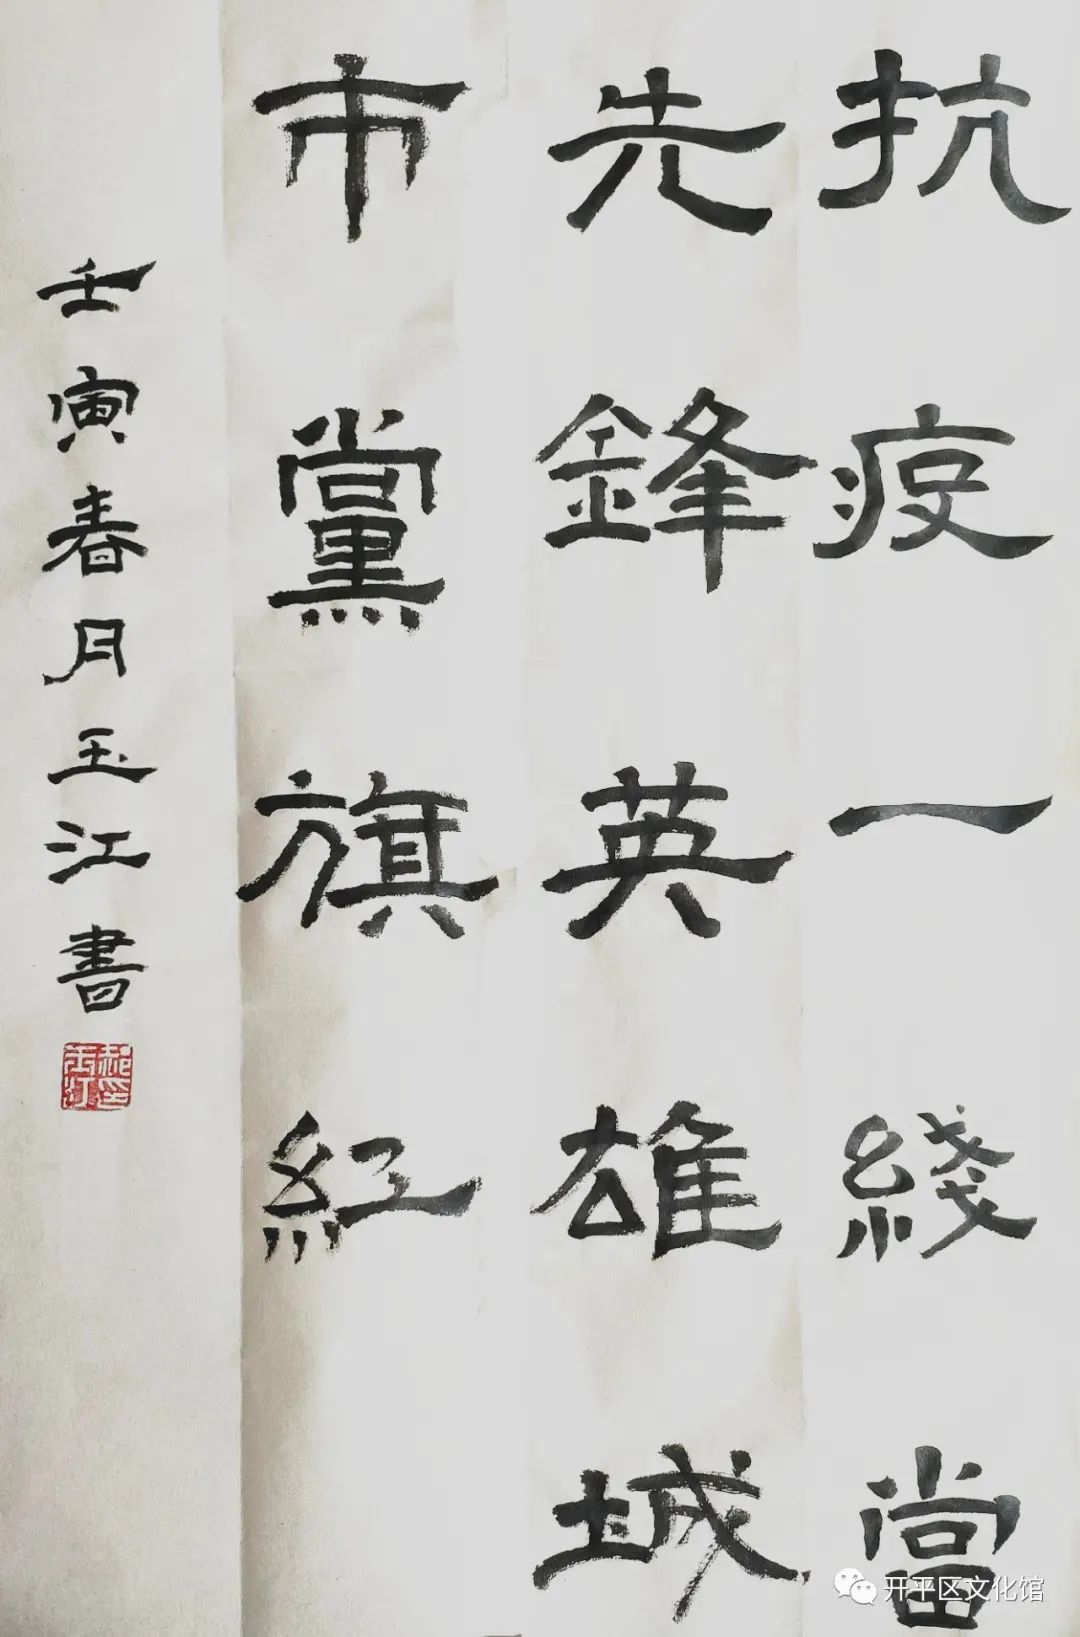 抗疫一綫當
先鋒英雄城
市黨旗紅
壬寅春月玉江書
郝玉江印
开平区文化馆